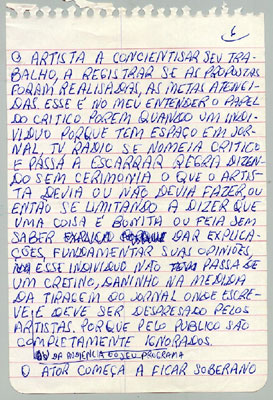 6
O ARTISTA A CONCIENTISAR SEU TRA-
BALHO, A REGISTRAR SE AS PROPOSTAS
FORAM REALISADAS, AS METAS ATINGI-
DAS. ESSE É NO MEU ENTENDER O PAPEL
DO CRITICO POREM QUANDO UM INDI-
VIDUO PORQUE TEM ESPAÇO EM JOR-
NAL, TV RADIO SE NOMEIA CRITICO
E PASSA A ESCARRAR REGRA DIZEN-
DO SEM CERIMONIA O QUE O ARTIS-
TA DEVIA OU NÃO DEVIA FAZER, OU
ENTÃO SE LIMITANDO A DIZER QUE
UMA COISA É BONITA OU FEIA SEM
SABER DAR EXPLICA-
ÇÕES, FUNDAMENTAR SUAS OPINIÕES,
ESSE INDIVIDUO NÃO PASSA DE
UM CRETINO, DANINHO NA MEDIDA
DA TIRAGEM DO JORNAL ONDE ESCRE-
VE, E DEVE SER DESPRESADO PELOS
ARTISTAS, PORQUE PELO PUBLICO SÃO
COMPLETAMENTE IGNORADOS.
OU DA AUDIENCIA DO SEU PROGRAMA
O ATOR COMEÇA A FICAR SOBERANO